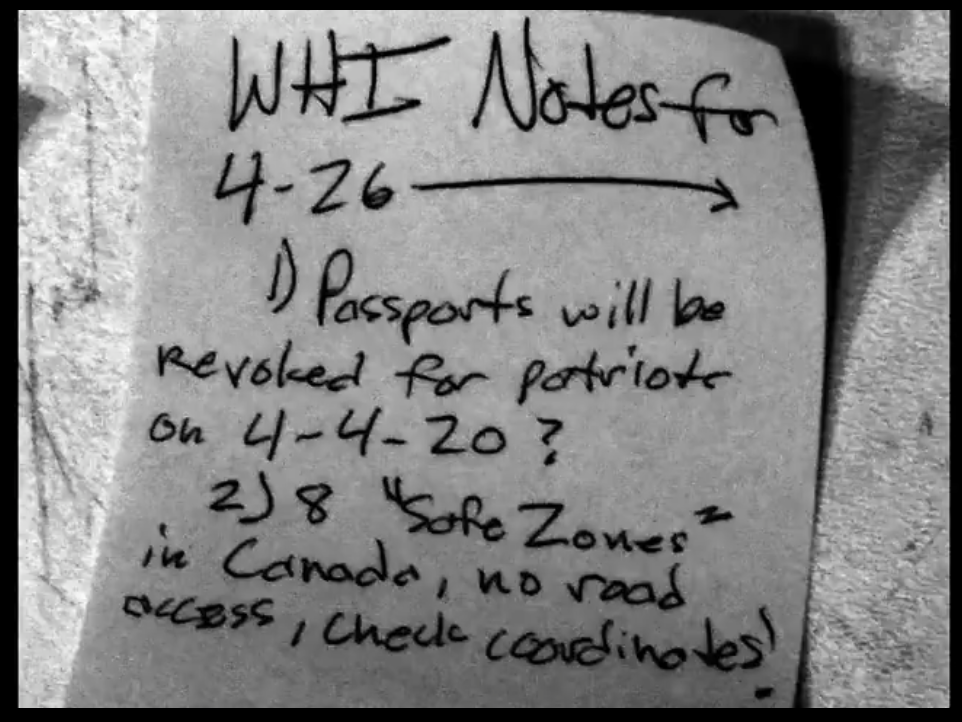 WHI Notes for
4-26 →
1) Passports will be
revoked for patriots
on 4-4-20?
2) 8 "Safe Zones"
in Canada, no road
access, check coordinates!